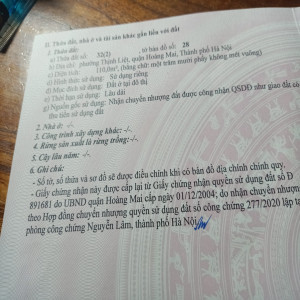 II. Thửa đất, nhà ở và tài sản khác gắn liền với đất
1. Thửa đất:
a) Thửa đất số: 32(2) , tờ bản đồ số: 28
b) Địa chỉ: phường Thịnh Liệt, quận Hoàng Mai, Thành phố Hà Nội
c) Diện tích: 110,0m², (bằng chữ: một trăm mười phẩy không mét vuông)
d) Hình thức sử dụng: Sử dụng riêng
đ) Mục đích sử dụng: Đất ở tại đô thị
e) Thời hạn sử dụng: Lâu dài
g) Nguồn gốc sử dụng: Nhận chuyển nhượng đất được công nhận QSDĐ như giao đất có
thu tiền sử dụng đất
2. Nhà ở: -/-
3. Công trình xây dựng khác: -/-.
4. Rừng sản xuất là rừng trồng:-/-.
5. Cây lâu năm: -/-.
6. Ghi chú:
- Số tờ, số thửa và sơ đồ sẽ được điều chỉnh khi có bản đồ địa chính chính quy.
- Giấy chứng nhận này được cấp lại từ Giấy chứng nhận quyền sử dụng đất số Đ
891681 do UBND quận Hoàng Mai cấp ngày 01/12/2004; do nhận chuyển nhượng
theo Hợp đồng chuyển nhượng quyền sử dụng đất số công chứng 277/2020 lập tạ
phòng công chứng Nguyễn Lâm, thành phố Hà Nội